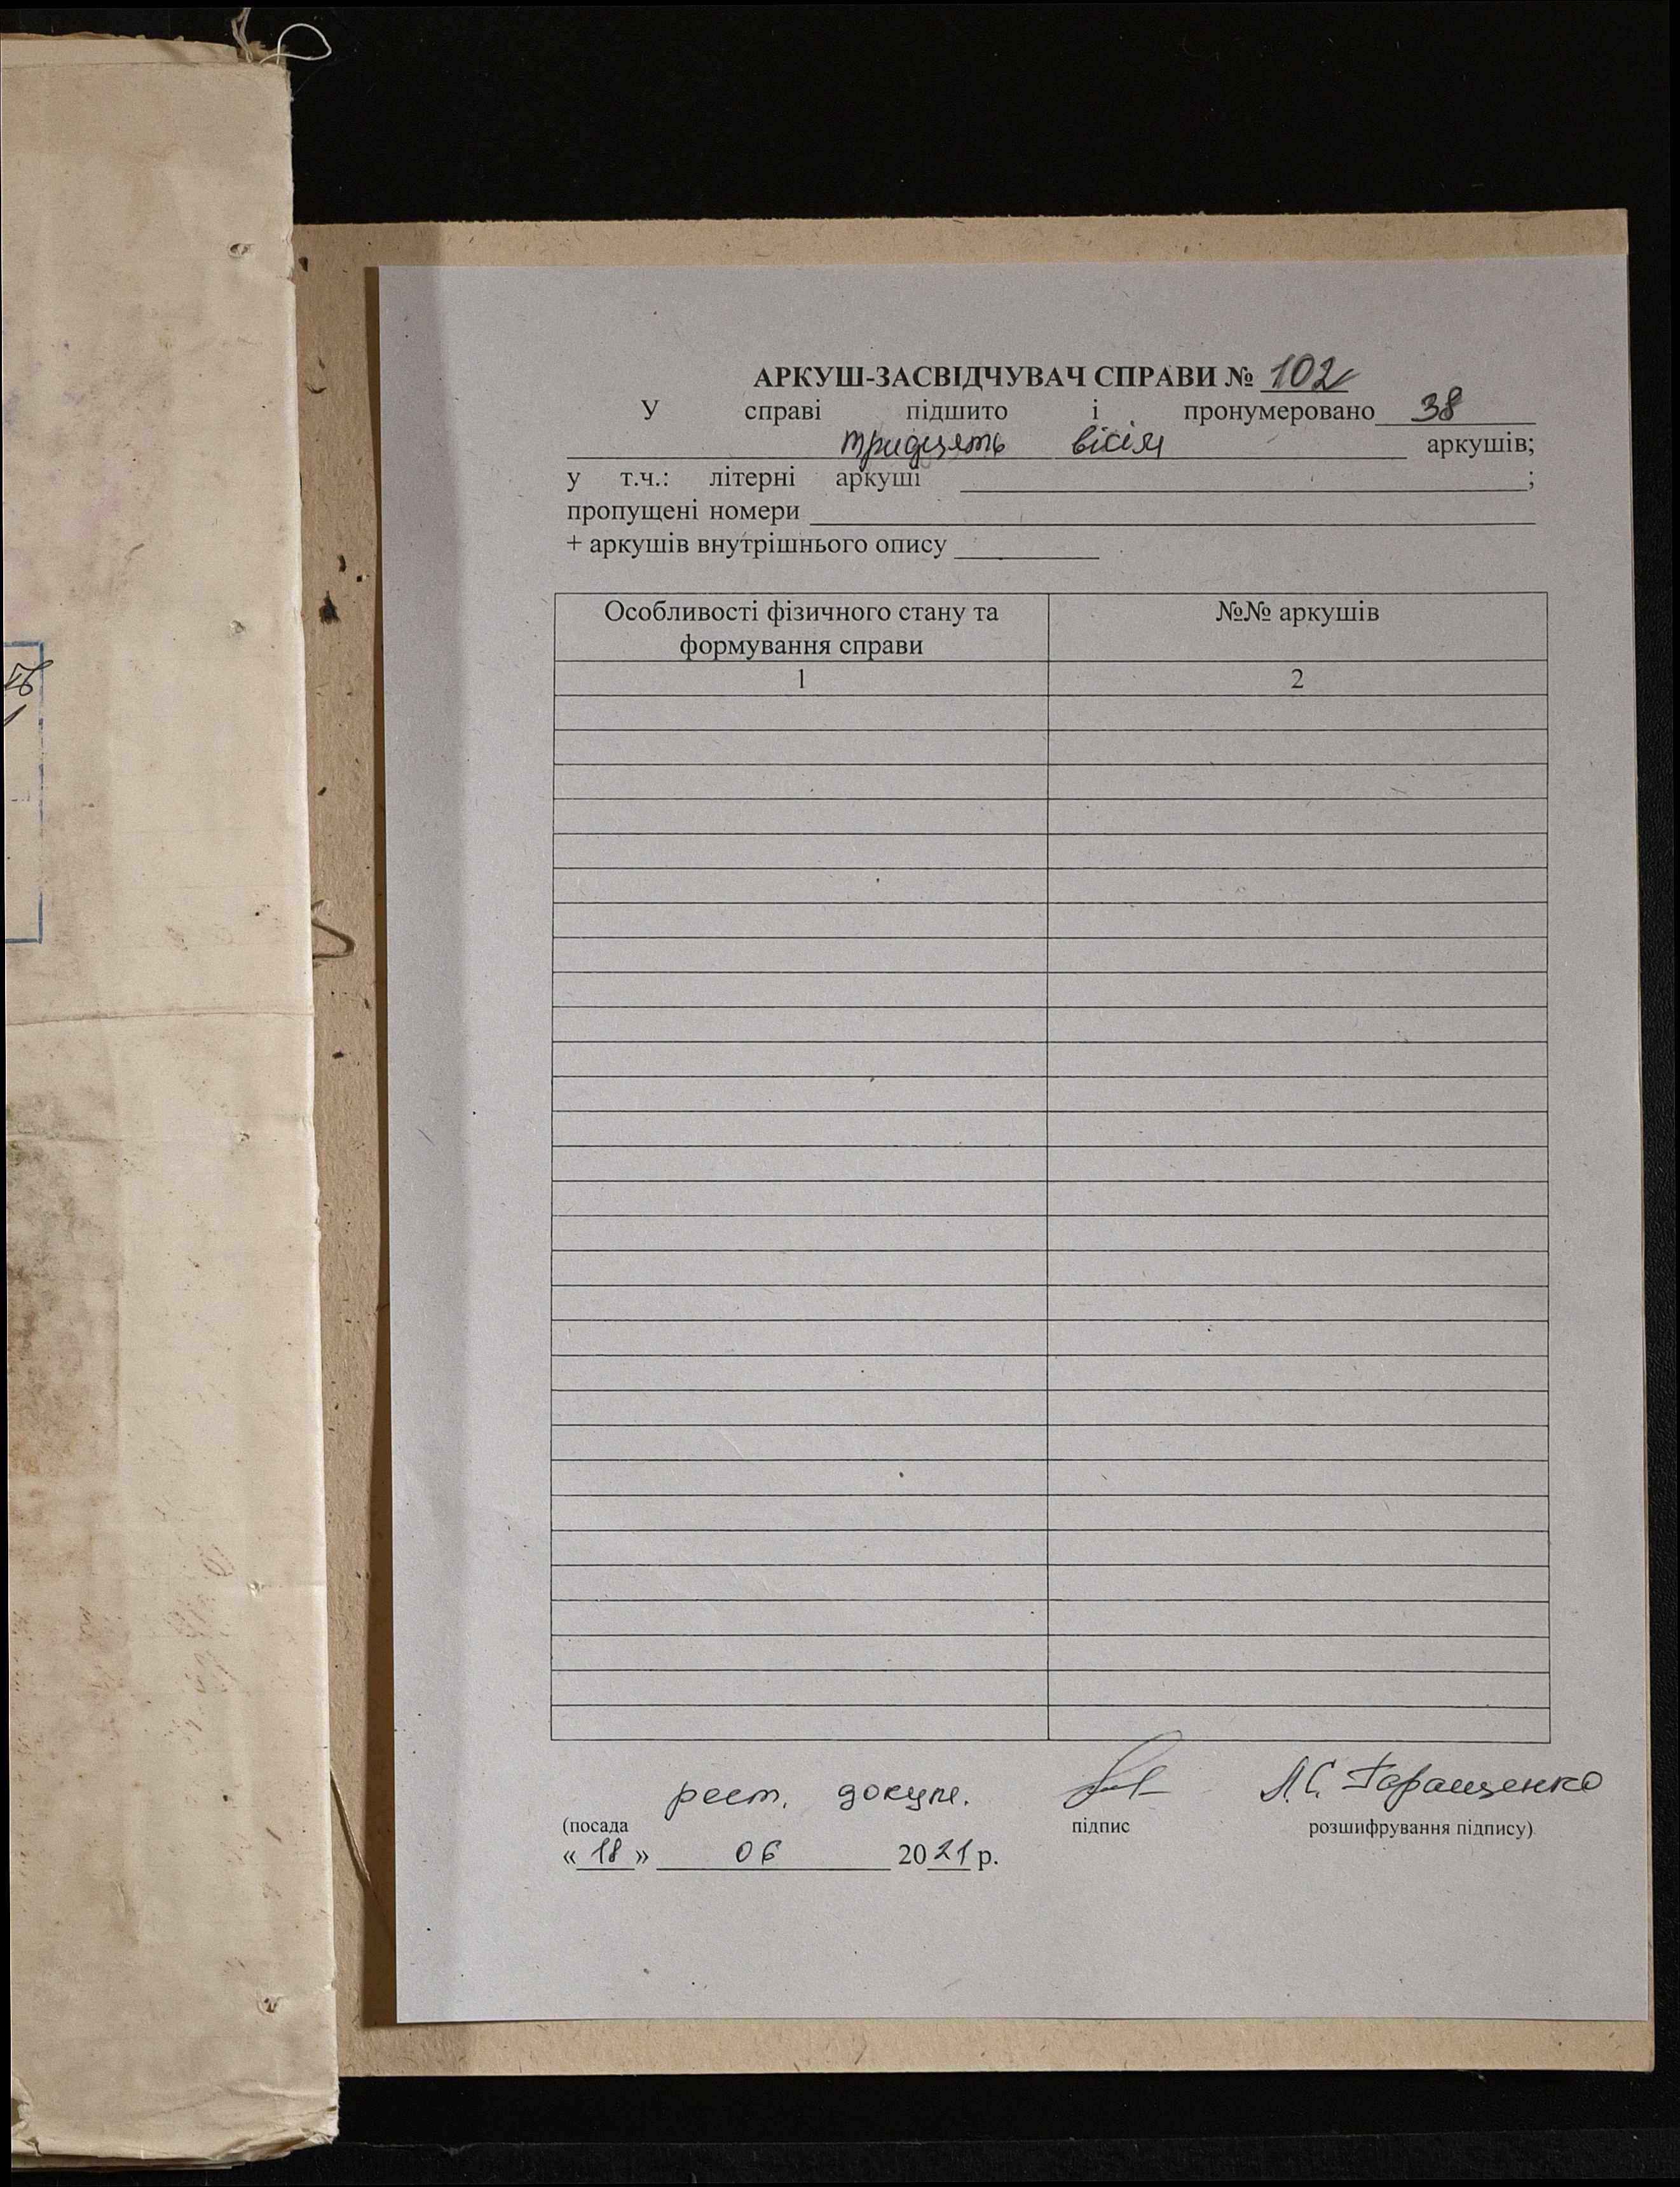 АРКУШ-ЗАСВІДЧУВАЧ СПРАВИ № 102
У справі підшито і пронумеровано 38
тридцять вісім аркушів;
у т.ч.: літерні аркуші ;
пропущені номери
+ аркушів внутрішнього опису
Особливості фізичного стану та формування справи №№ аркушів
1 2
рест. докум. Л.С. Таращенко
(посада підпис розшифрування підпису)
«18» 06 2021 р.